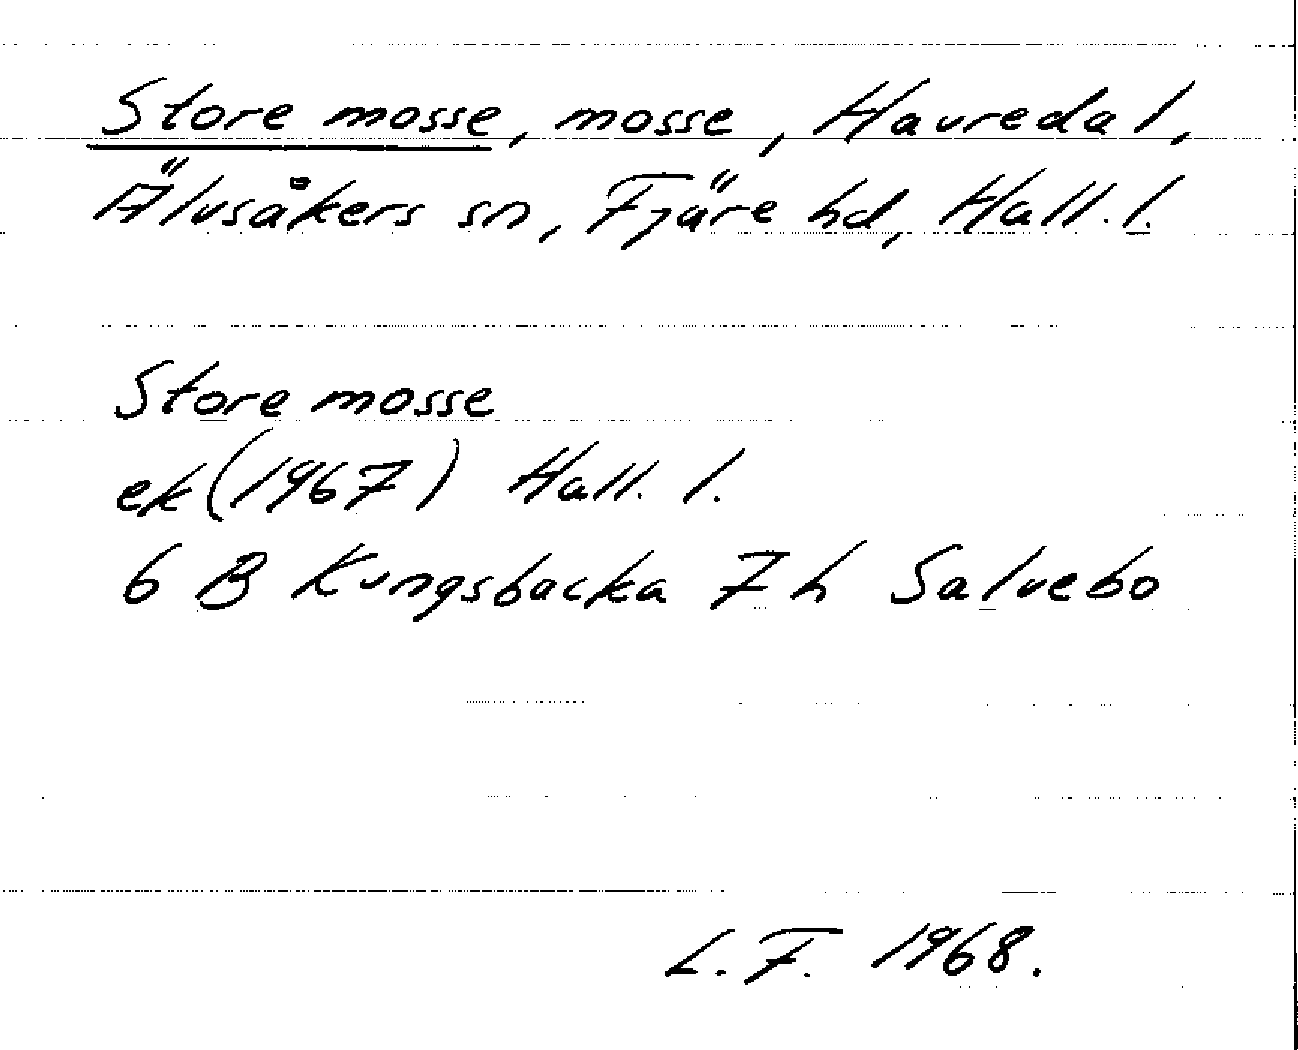 Store mosse, mosse, Havredal,
Älvsåkers sn, Fjäre hd, Hall. l.
Store mosse
ek (1967) Hall. l.
6 B Kungsbacka 7 h Salvebo
L. F. 1968.